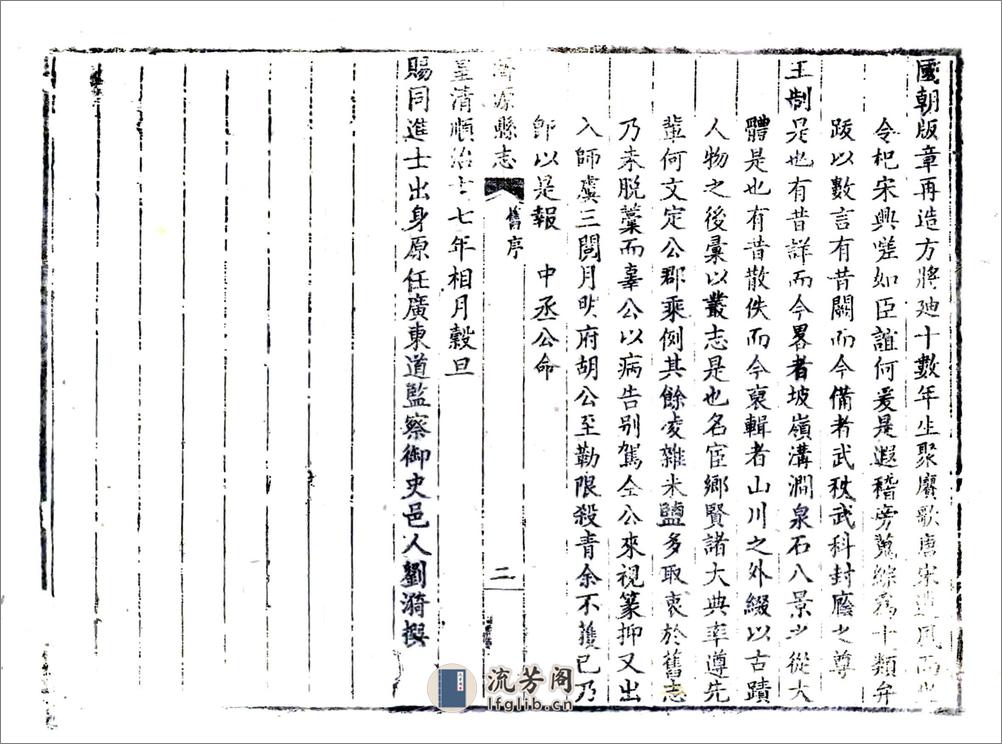 國朝版章再造方將廸十數年生聚賡歌唐宋遺風而
令杞宋興嗟如臣誼何爰是遐稽旁蒐綜爲十類弁
䟦以數言有昔闕而今備者武秩武科封廕之尊
王制是也有昔詳而今畧者坡嶺溝澗泉石八景之從大
體是也有昔散佚而今裒輯者山川之外綴以古蹟
人物之後彙以叢志是也名宦鄉賢諸大典率遵先
輩何文定公郡乘例其餘凌雜米鹽多取衷於舊志
乃未脫藁而辜公以病告别駕仝公來視篆抑又出
入師虞三閱月明府胡公至勤限殺青余不獲已乃
即以是報 中丞公命
濟源縣志 舊序 二
皇清順治十七年相月穀旦
賜同進士出身原任廣東道監察御史邑人劉漪撰
流芳阁
lfglib.cn